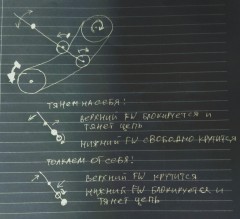 ТЯНЕМ НА СЕБЯ:
ВЕРХНИЙ FW БЛОКИРУЕТСЯ И
ТЯНЕТ ЦЕПЬ
НИЖНИЙ FW СВОБОДНО КРУТИТСЯ
ТОЛКАЕМ ОТ СЕБЯ:
ВЕРХНИЙ FW КРУТИТСЯ
НИЖНИЙ FW БЛОКИРУЕТСЯ И
ТЯНЕТ ЦЕПЬ